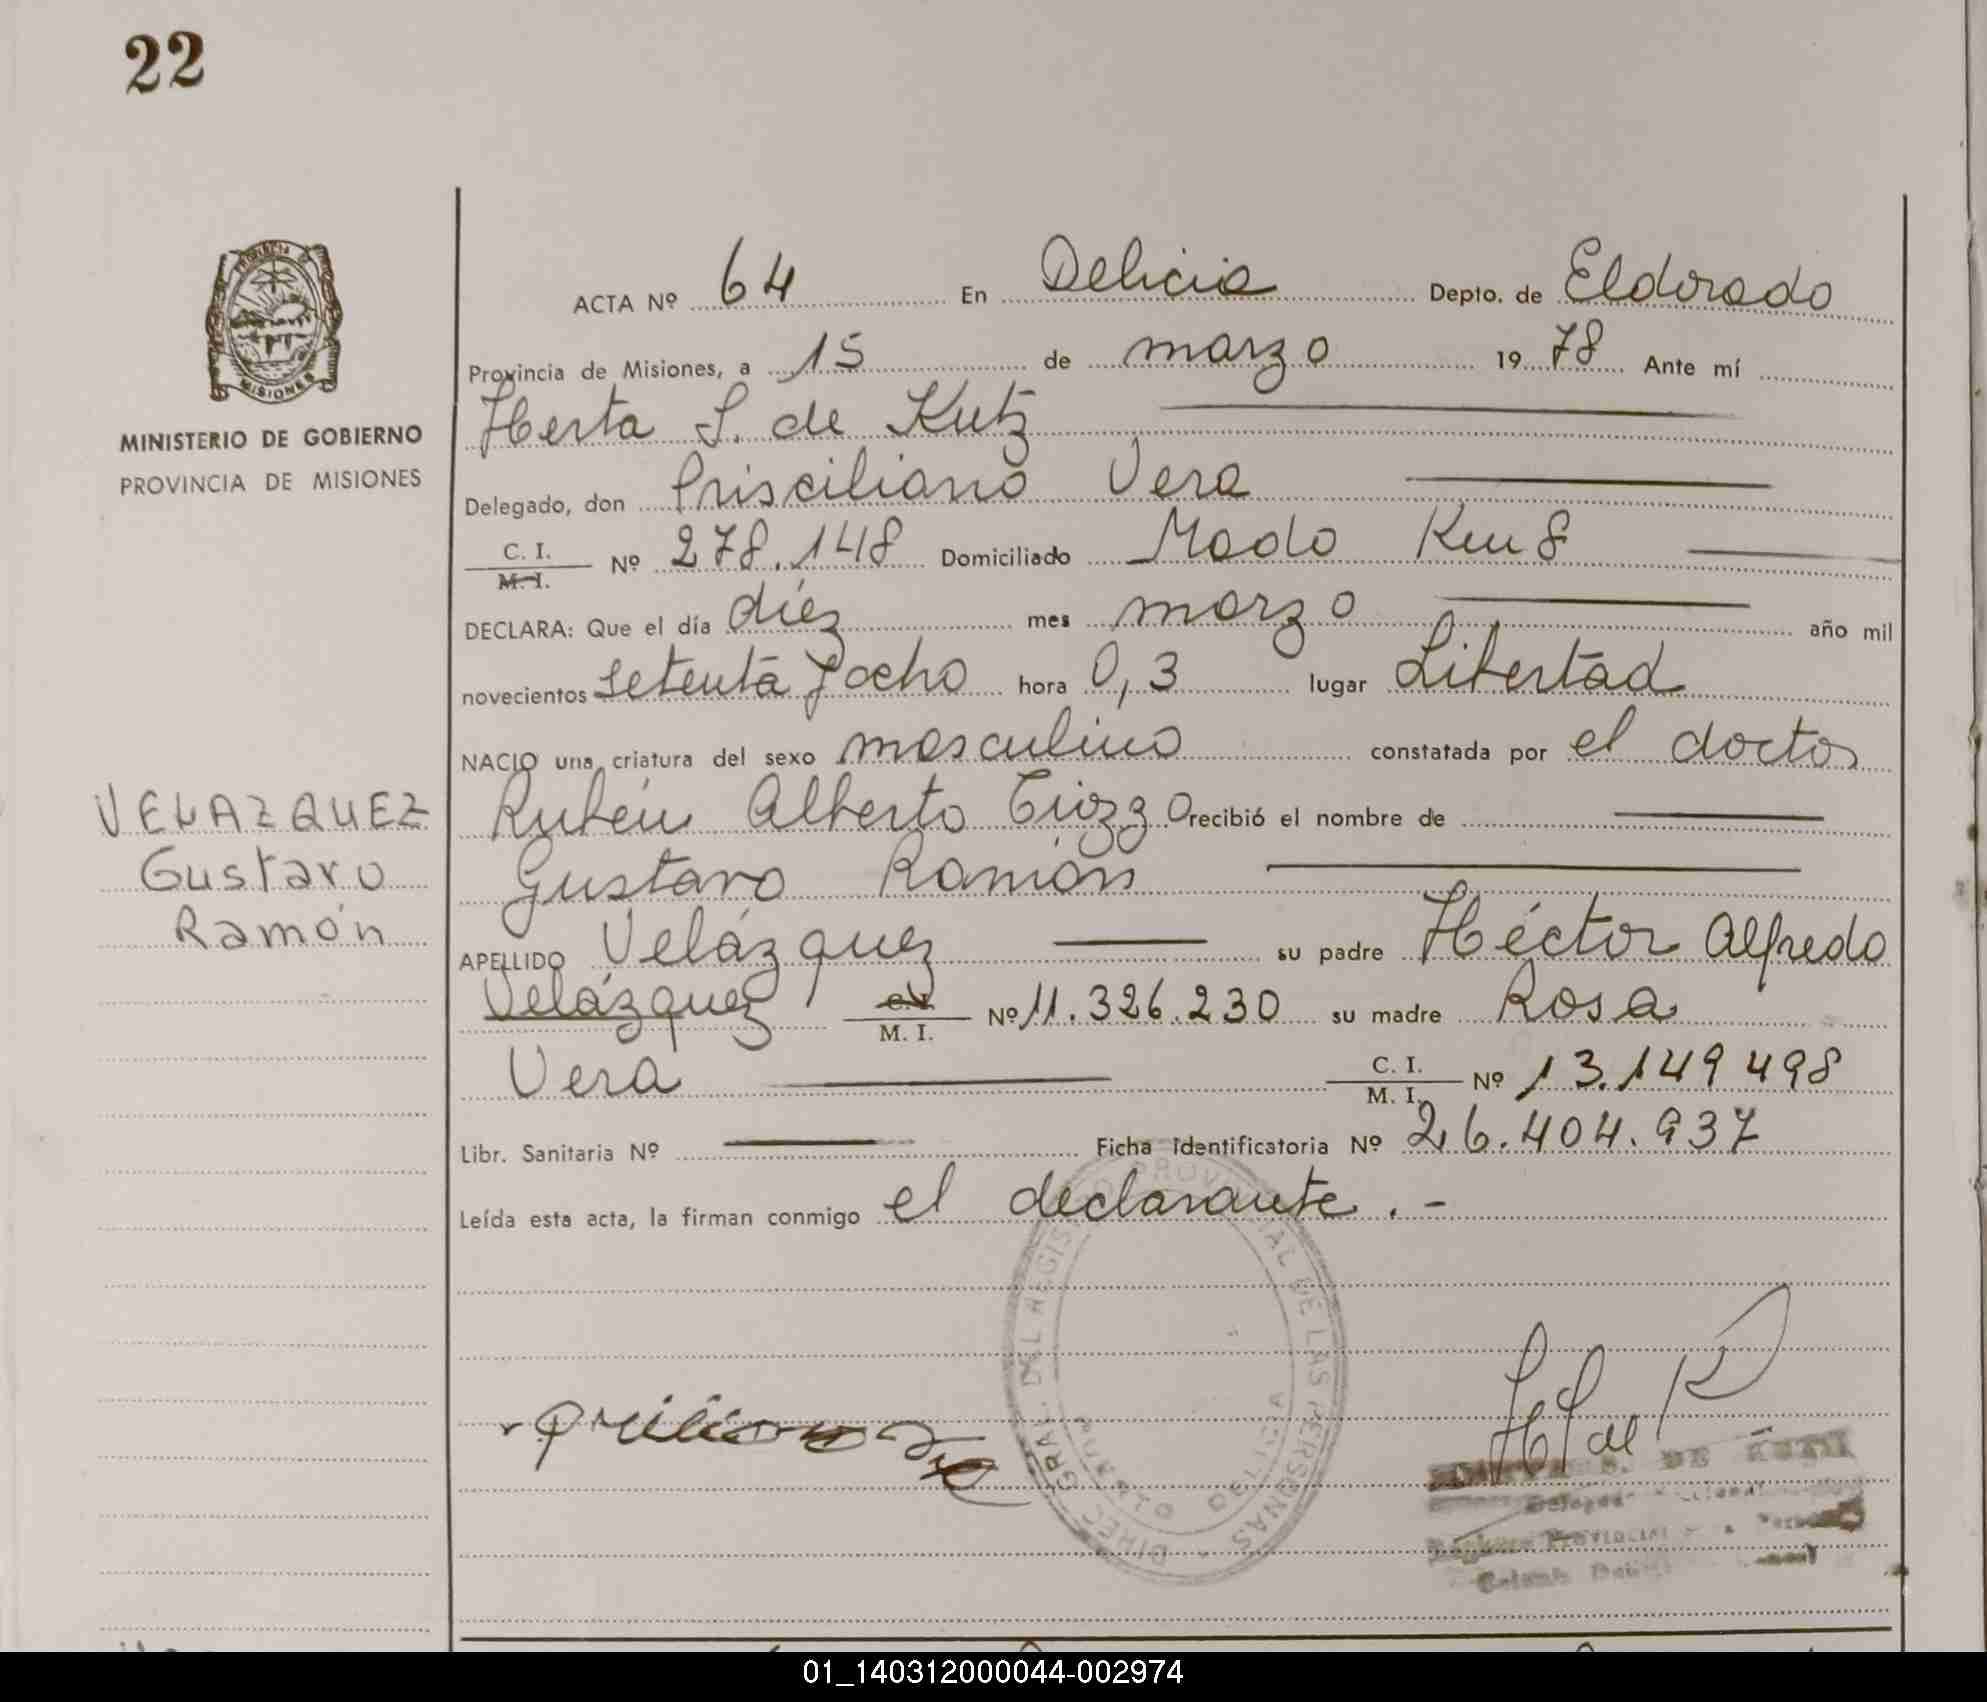 22
PROVINCIA DE
MISIONES
MINISTERIO DE GOBIERNO
PROVINCIA DE MISIONES
VELAZQUEZ
Gustavo
Ramón
ACTA Nº 64 En Delicia Depto. de Eldorado
Provincia de Misiones, a 15 de marzo 1978 Ante mí
Herta S. de Kutz
Delegado, don Prisciliano Vera
C. I.
M. I. Nº 278.148 Domiciliado Mado Km 8
DECLARA: Que el día diez mes marzo año mil
novecientos setenta y ocho hora 0,3 lugar Libertad
NACIO una criatura del sexo masculino constatada por el doctor
Rubén Alberto Tiozzo recibió el nombre de
Gustavo Ramón
APELLIDO Velázquez su padre Héctor Alfredo
Velázquez C. I.
M. I. Nº 11.326.230 su madre Rosa
Vera C. I.
M. I. Nº 13.149 498
Libr. Sanitaria Nº Ficha Identificatoria Nº 26.404.937
Leída esta acta, la firman conmigo el declarante. -
DIREC. GRAL. DEL REGISTRO PROVINCIAL DE LAS PERSONAS
DELICIA
S. DE KUTZ
01_140312000044-002974